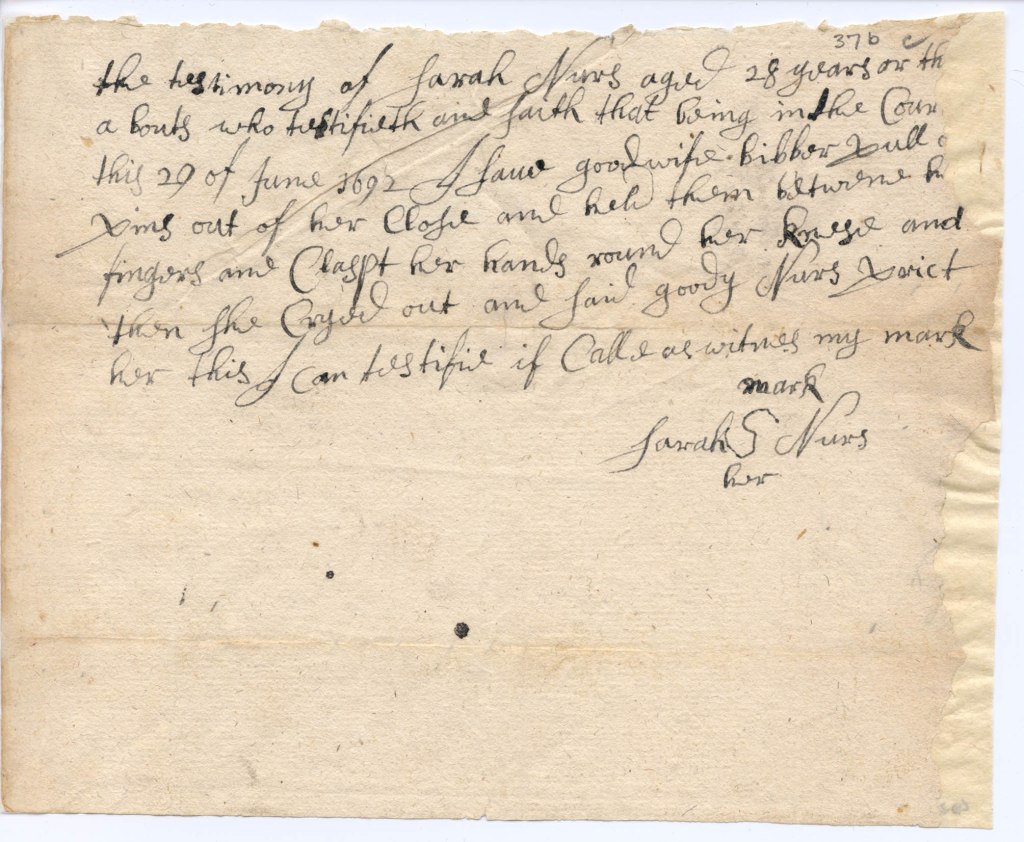 37b c
the testimony of Sarah Nurs aged 28 years or th
a bouts who testifieth and saith that being in the Cour
this 29 of June 1692 I saw goodwife bibber pull
pins out of her Close and held them betwene h
fingers and Claspt her hands round her knese and
then she Cryed out and said goody Nurs prict
her this I can testifie if Calld as witnes my mark
mark
Sarah S Nurs
her